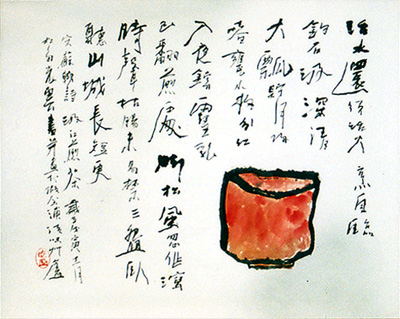 活水還須活火烹自臨
釣石汲深清
大瓢貯月歸
春甕小杓分江
入夜缾雪乳
已翻煎處腳松風忽作瀉
時聲枯腸未易禁三盌臥
聽山城長短更
蘇軾詩汲江煎茶 寅十二月